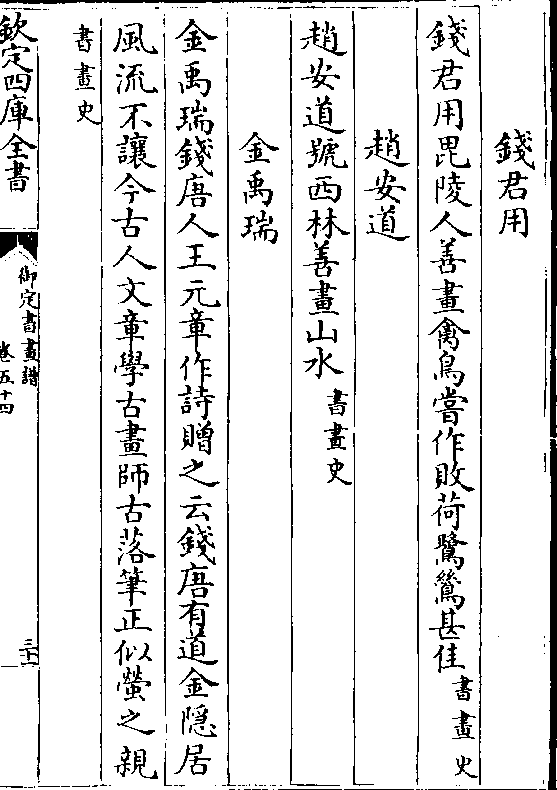 錢君用
錢君用毘陵人善畫禽鳥嘗作敗荷鷺鷥甚佳書畫史
趙安道
趙安道號西林善畫山水書畫史
金禹瑞
金禹瑞錢唐人王元章作詩贈之云錢唐有道金隱居
風流不讓今古人文章學古畫師古落筆正似螢之親
書畫史
欽定四庫全書
御定書畫譜
卷五十四